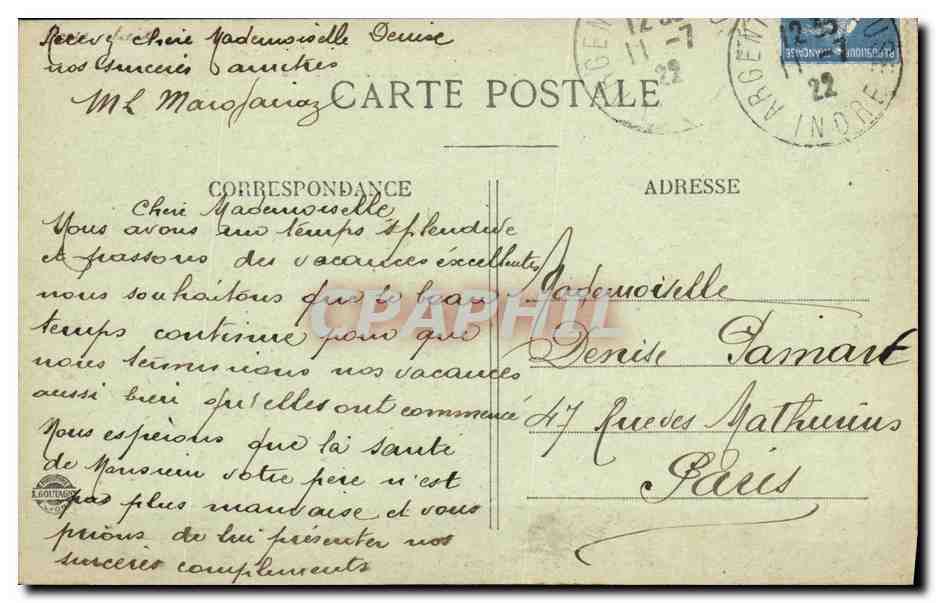 Recevez chere Mademoiselle Denise
nos sincères amitiés
ML
CARTE POSTALE
ARGEN
12
11 -7
22
ARGEN
12 35
11 -7
22
INDRE
FRANÇAISE
CORRESPONDANCE
Chere Mademoiselle
Nous avons un temps splendide
et passons des vacances excellentes
nous souhaitons que le beau
temps continue pour que
nous terminions nos vacances
aussi bien qu'elles ont commencé
Nous espérons que la santé
de Monsieur votre père n'est
pas plus mauvaise et vous
prions de lui présenter nos
sincères compliments
ADRESSE
Mademoiselle
Denise Tamart
47 Rue des Mathurins
Paris
CPAPHIL